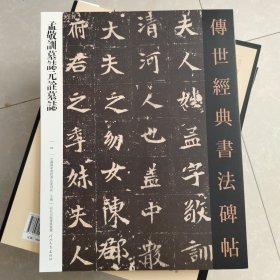 傳世經典書法碑帖
夫人姓孟字敬訓
河人也盖中散
大夫之幼女陳郡
君之季妹夫人
孟敬訓墓誌 元詮墓誌